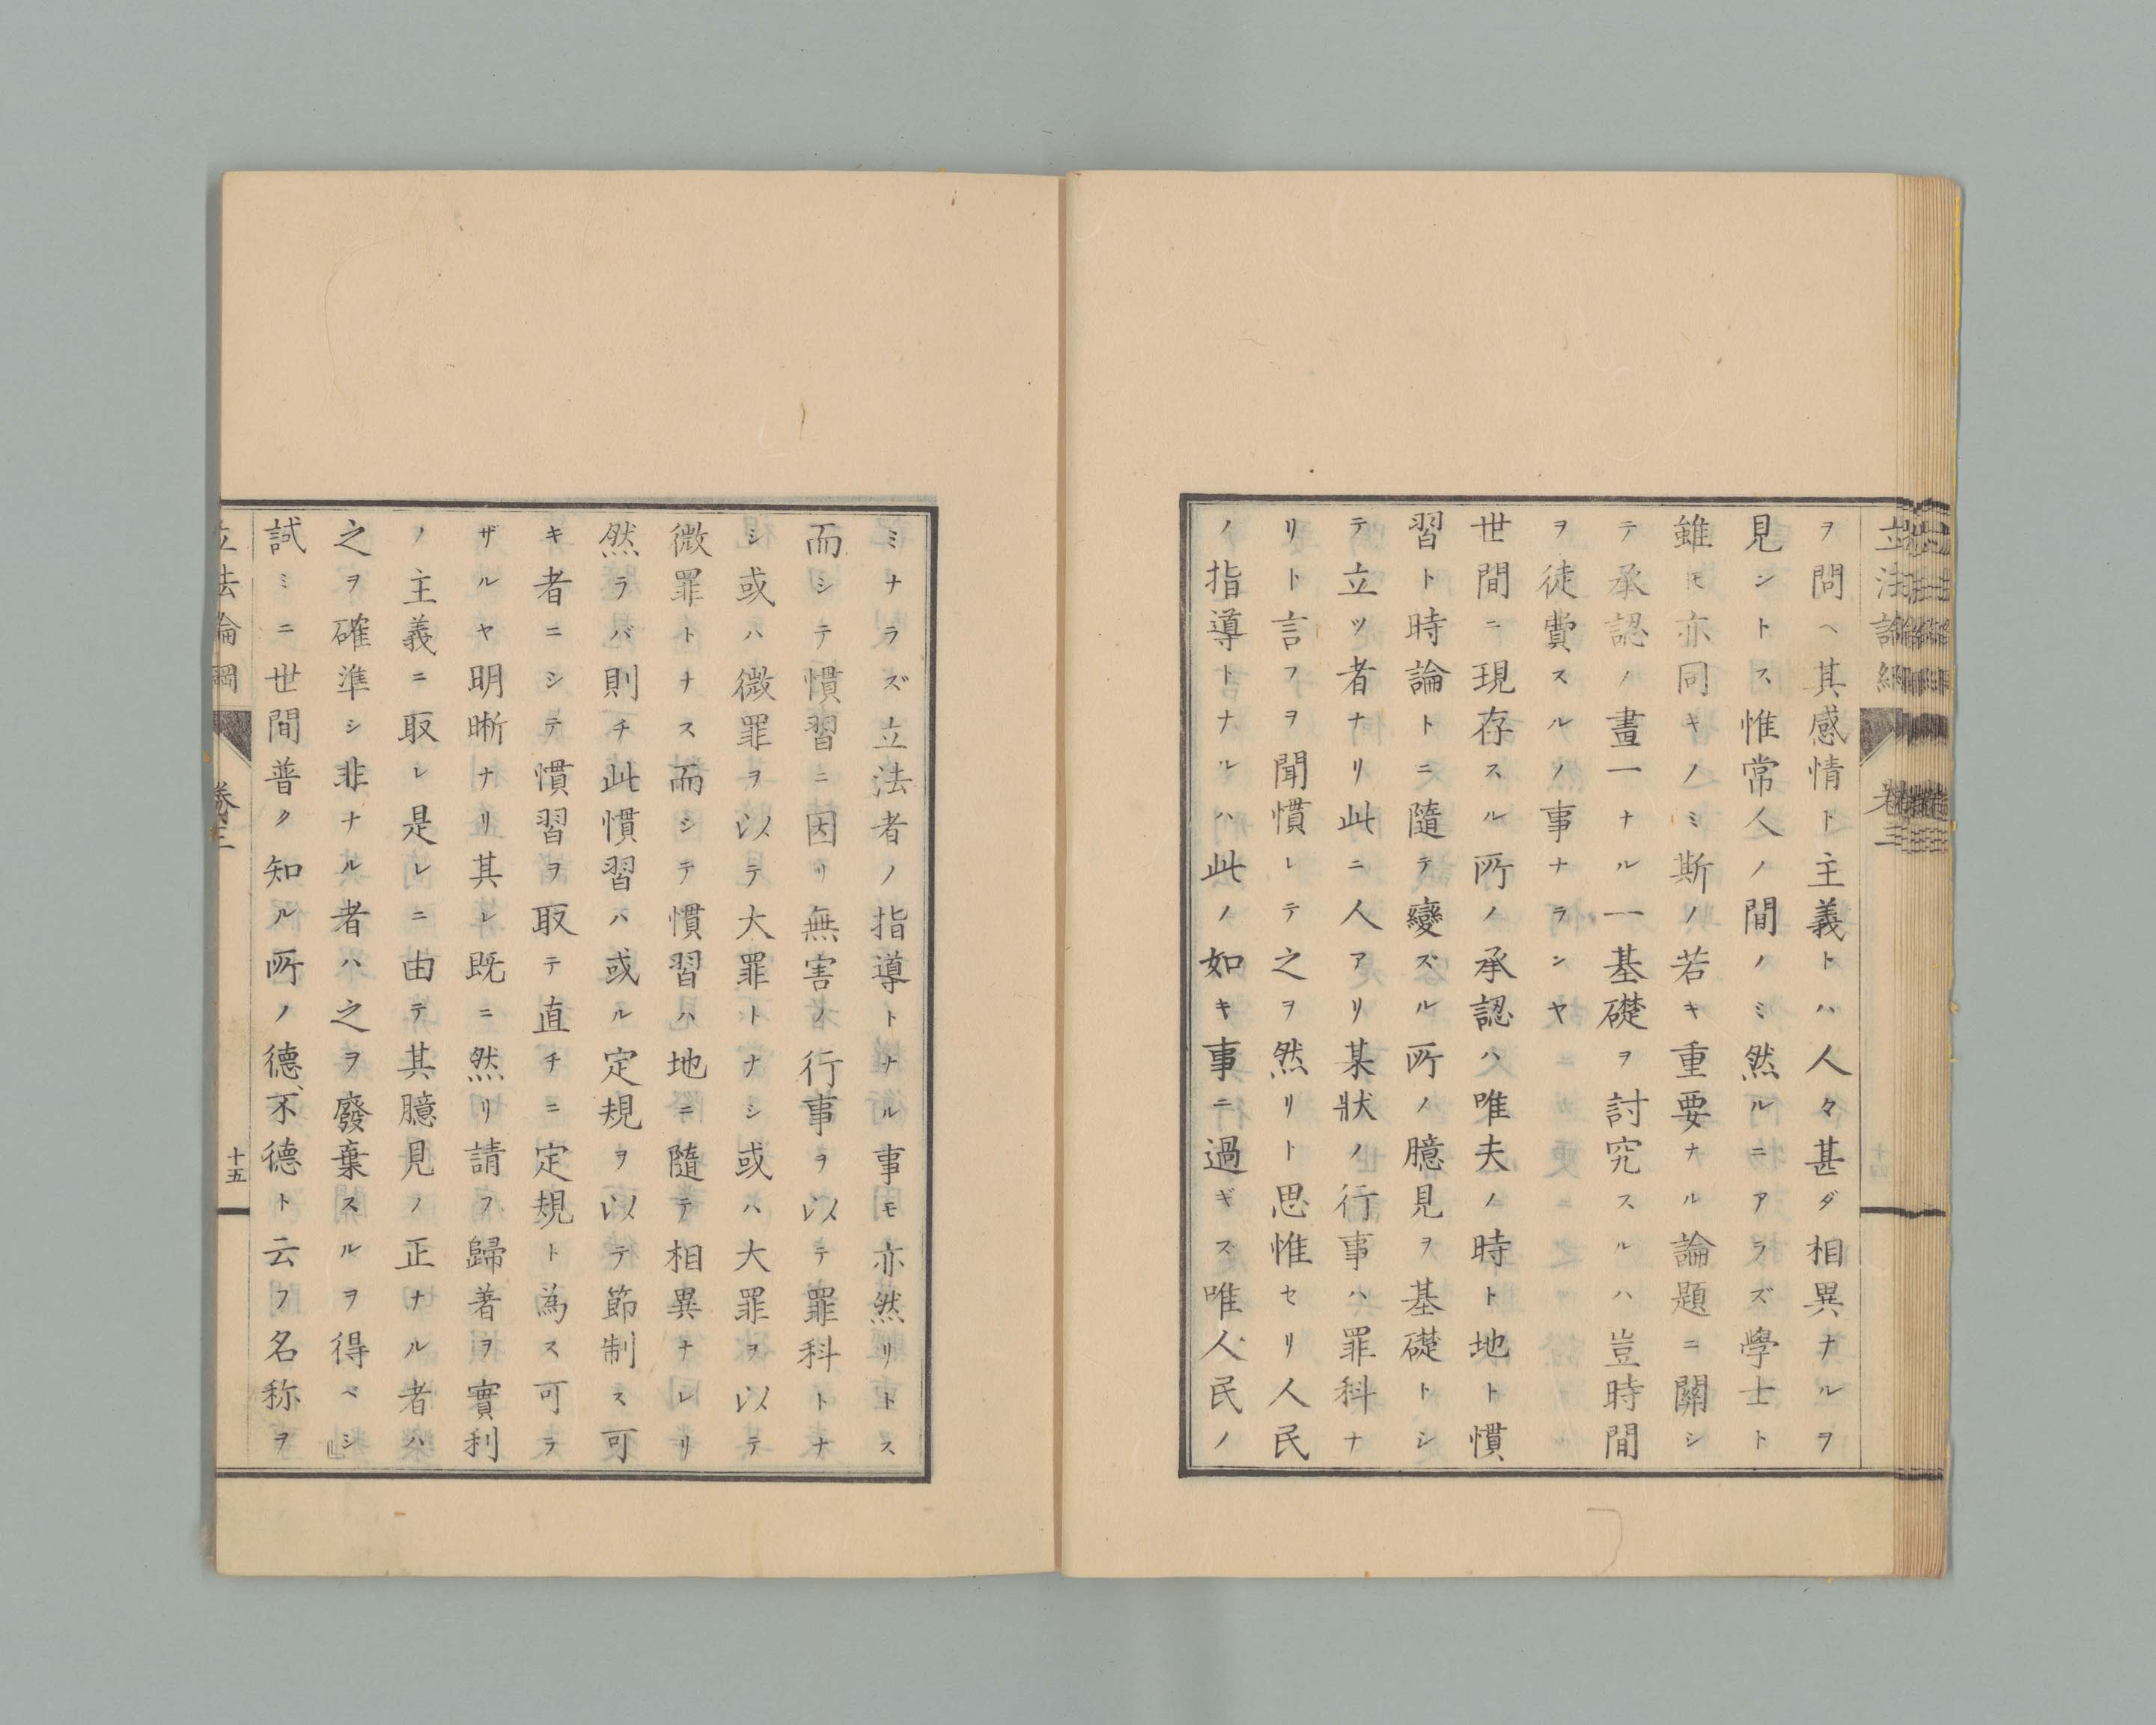 立法論綱 卷三
ヲ問ヘ其感情ト主義トハ人々甚ダ相異ナルヲ
見ントス惟常人ノ間ノミ然ルニアラズ學士ト
雖モ亦同キノミ斯ノ若キ重要ナル論題ニ關シ
テ承認ノ畫一ナル一基礎ヲ討究スルハ豈時間
ヲ徒費スルノ事ナランヤ
世間ニ現存スル所ノ承認ハ唯夫ノ時ト地ト慣
習ト時論トニ隨テ變ズル所ノ臆見ヲ基礎トシ
テ立ツ者ナリ此ニ人アリ某狀ノ行事ハ罪科ナ
リト言フヲ聞慣レテ之ヲ然リト思惟セリ人民
ノ指導トナルハ此ノ如キ事ニ過ギズ唯人民ノ
ミナラズ立法者ノ指導トナル事モ亦然リトス
而シテ慣習ニ因リ無害ノ行事ヲ以テ罪科トナ
シ或ハ微罪ヲ以テ大罪トナシ或ハ大罪ヲ以テ
微罪トナス而シテ慣習ハ地ニ隨テ相異ナレリ
然ラバ則チ此慣習ハ或ル定規ヲ以テ節制ス可
キ者ニシテ慣習ヲ取テ直チニ定規ト為ス可ラ
ザルヤ明晰ナリ其レ既ニ然リ請フ歸著ヲ實利
ノ主義ニ取レ是レニ由テ其臆見ノ正ナル者ハ
之ヲ確準シ非ナル者ハ之ヲ廢棄スルヲ得ベシ』
試ミニ世間普ク知ル所ノ德、不德ト云フ名称ヲ
立法論綱 卷三 十五